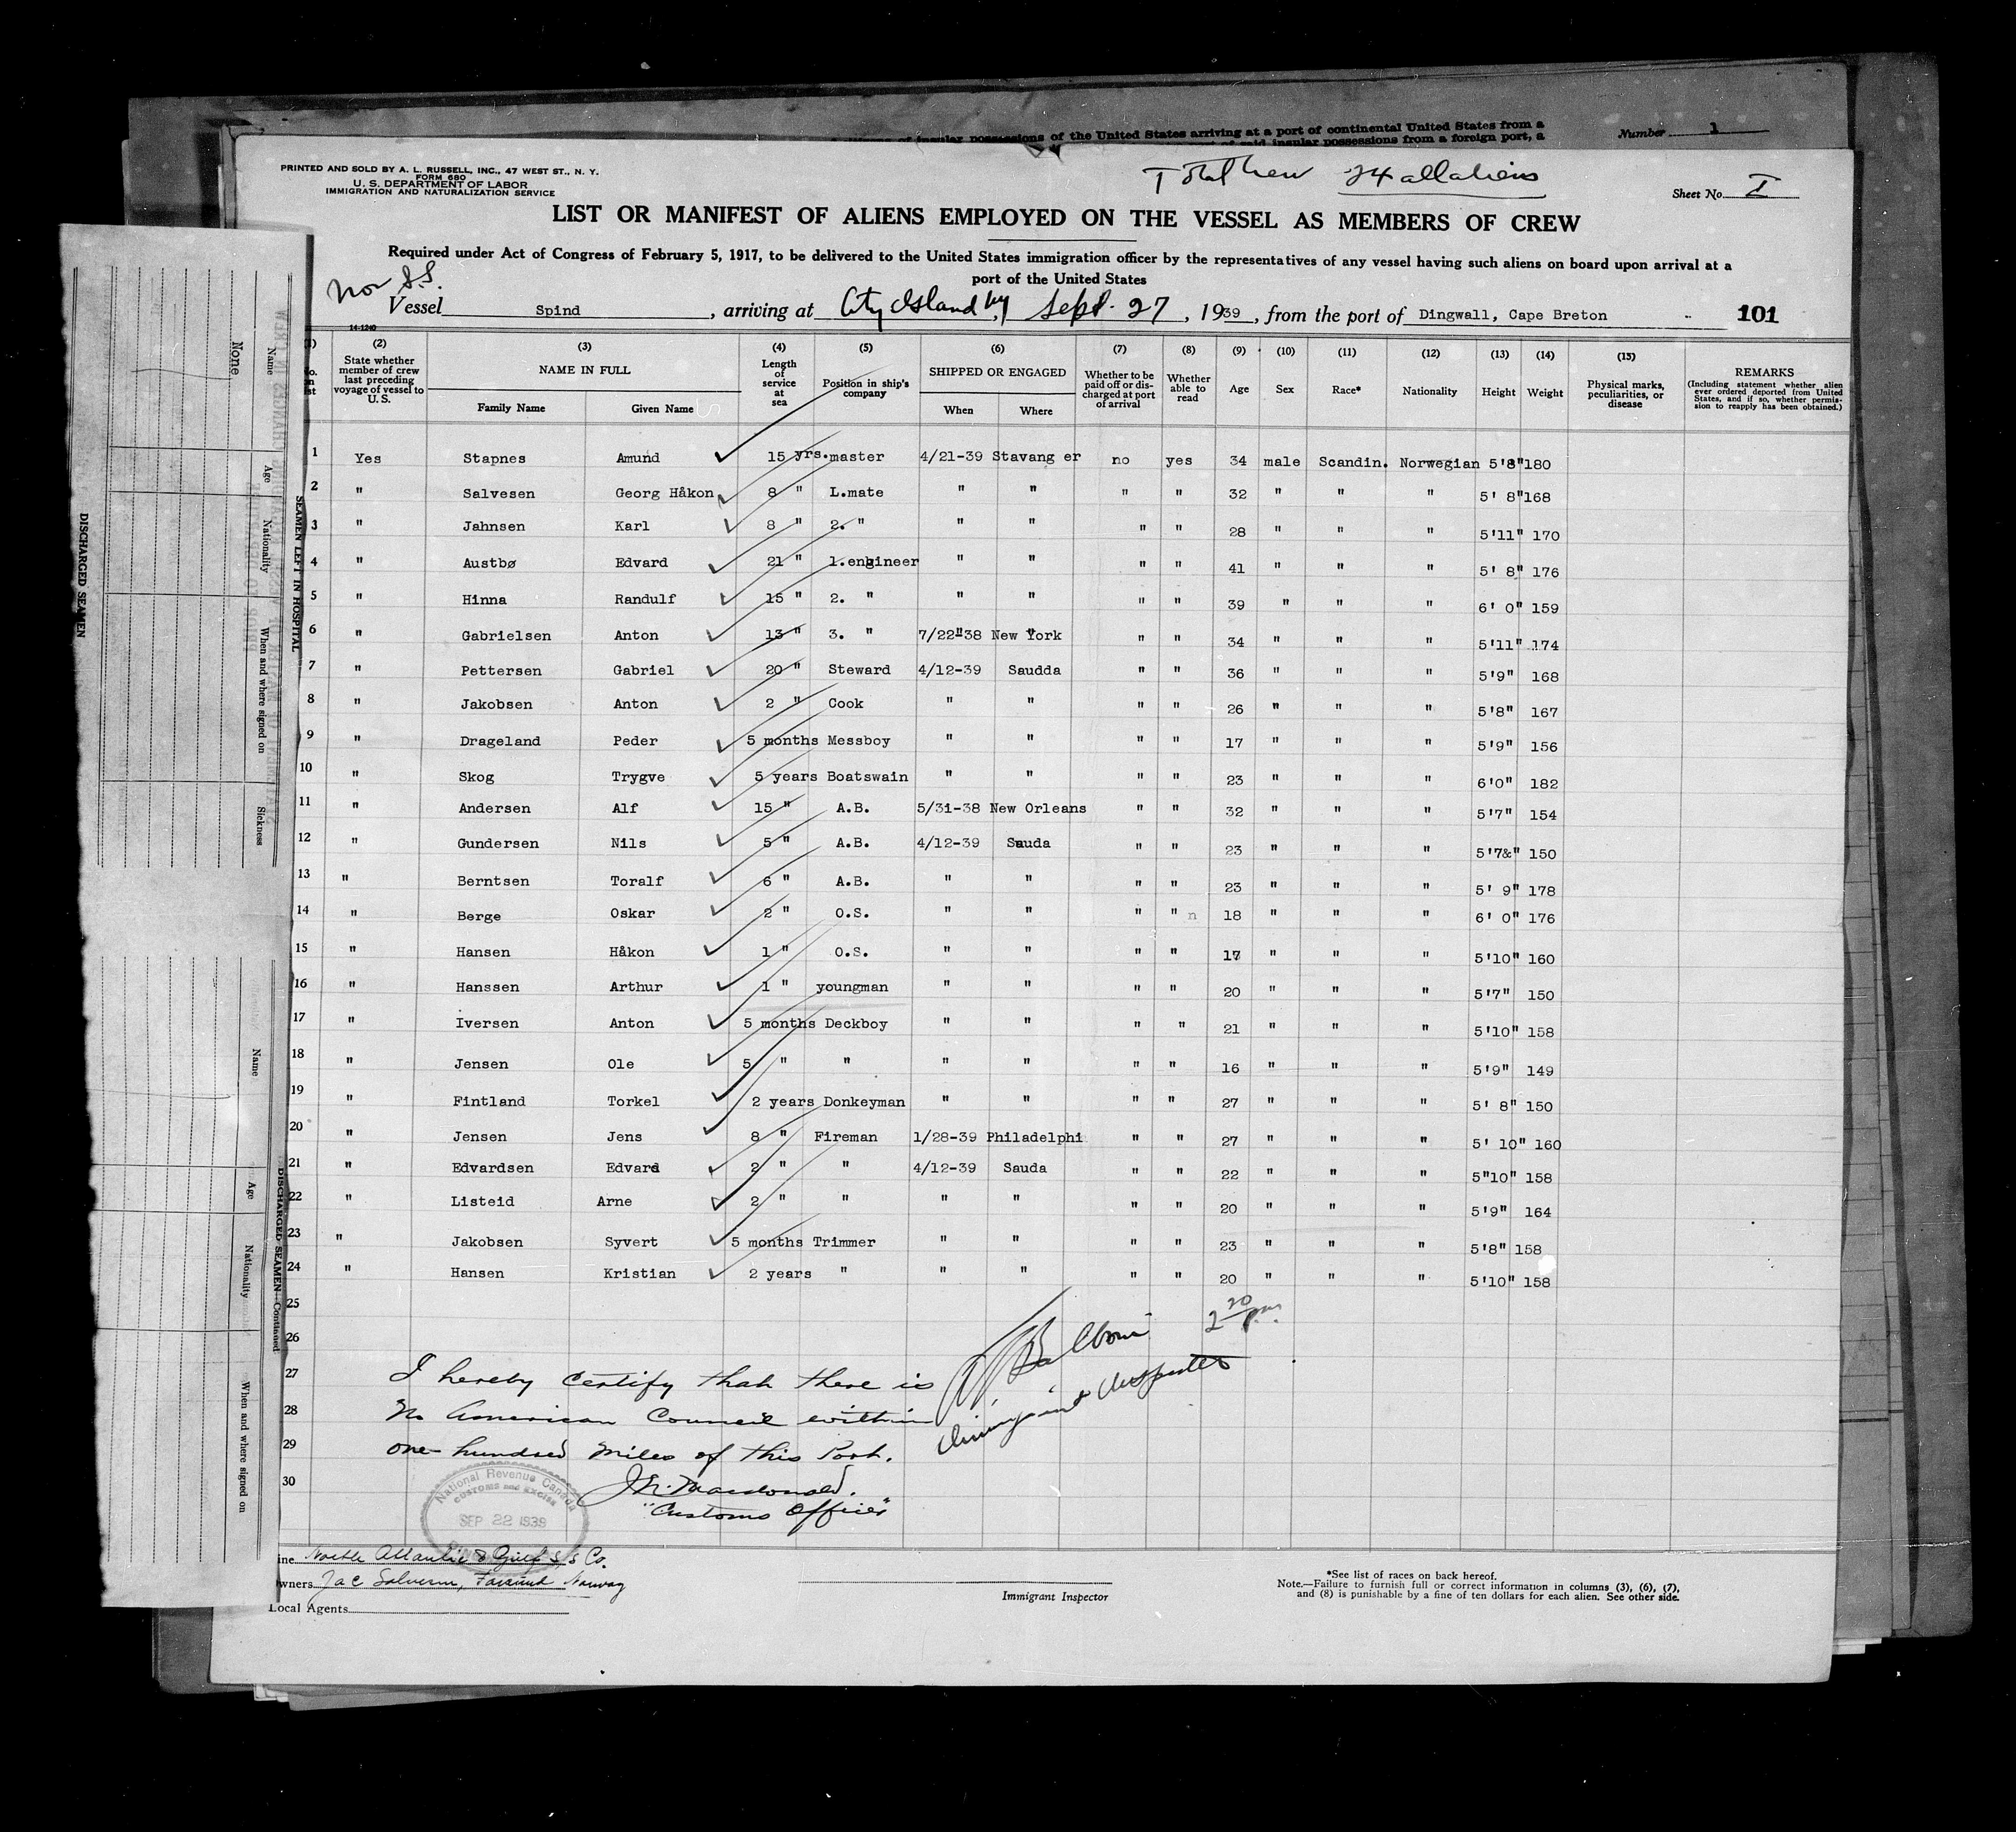 of insular possessions of the United States arriving at a port of continental United States from a
of said insular possessions from a foreign port, a
Number 1
PRINTED AND SOLD BY A. L. RUSSELL, INC., 47 WEST ST., N. Y.
FORM 680
U. S. DEPARTMENT OF LABOR
IMMIGRATION AND NATURALIZATION SERVICE
Total Crew 24 all aliens
Sheet No. I
LIST OR MANIFEST OF ALIENS EMPLOYED ON THE VESSEL AS MEMBERS OF CREW
Required under Act of Congress of February 5, 1917, to be delivered to the United States immigration officer by the representatives of any vessel having such aliens on board upon arrival at a
port of the United States
Nor S.S.
Vessel Spind, arriving at City Island NY Sept. 27, 1939, from the port of Dingwall, Cape Breton 101
14-1240
(1) (2) (3) (4) (5) (6) (7) (8) (9) (10) (11) (12) (13) (14) (15)
State whether member of crew last preceding voyage of vessel to U. S. NAME IN FULL Family Name Given Name Length of service at sea Position in ship's company SHIPPED OR ENGAGED When Where Whether to be paid off or discharged at port of arrival Whether able to read Age Sex Race* Nationality Height Weight Physical marks, peculiarities, or disease REMARKS (Including statement whether alien ever ordered deported from United States, and if so, whether permission to reapply has been obtained.)
1 Yes Stapnes Amund 15 yrs. master 4/21-39 Stavang er no yes 34 male Scandin. Norwegian 5'8" 180
2 " Salvesen Georg Håkon 8 " L.mate " " " " 32 " " " 5' 8" 168
3 " Jahnsen Karl 8 " 2. " " " " " 28 " " " 5'11" 170
4 " Austbø Edvard 21 " 1.engineer " " " " 41 " " " 5' 8" 176
5 " Hinna Randulf 15 " 2. " " " " " 39 " " " 6' 0" 159
6 " Gabrielsen Anton 13 " 3. " 7/22"38 New York " " 34 " " " 5'11" 174
7 " Pettersen Gabriel 20 " Steward 4/12-39 Saudda " " 36 " " " 5'9" 168
8 " Jakobsen Anton 2 " Cook " " " " 26 " " " 5'8" 167
9 " Drageland Peder 5 months Messboy " " " " 17 " " " 5'9" 156
10 " Skog Trygve 5 years Boatswain " " " " 23 " " " 6'0" 182
11 " Andersen Alf 15 " A.B. 5/31-38 New Orleans " " 32 " " " 5'7" 154
12 " Gundersen Nils 5 " A.B. 4/12-39 Sauda " " 23 " " " 5'7&" 150
13 " Berntsen Toralf 6 " A.B. " " " " 23 " " " 5' 9" 178
14 " Berge Oskar 2 " O.S. " " " " n 18 " " " 6' 0" 176
15 " Hansen Håkon 1 " O.S. " " " " 17 " " " 5'10" 160
16 " Hanssen Arthur 1 " youngman " " " " 20 " " " 5'7" 150
17 " Iversen Anton 5 months Deckboy " " " " 21 " " " 5'10" 158
18 " Jensen Ole 5 " " " " " " 16 " " " 5'9" 149
19 " Fintland Torkel 2 years Donkeyman " " " " 27 " " " 5' 8" 150
20 " Jensen Jens 8 " Fireman 1/28-39 Philadelphi " " 27 " " " 5' 10" 160
21 " Edvardsen Edvard 2 " " 4/12-39 Sauda " " 22 " " " 5"10" 158
22 " Listeid Arne 2 " " " " " " 20 " " " 5'9" 164
23 " Jakobsen Syvert 5 months Trimmer " " " " 23 " " " 5'8" 158
24 " Hansen Kristian 2 years " " " " " 20 " " " 5'10" 158
25
26
27
28
29
30
2 20 pm
I hereby certify that there is
No American Council within
one hundred miles of this Port.
J.N. Macdonald.
"Customs Officer"
Immigrant Inspector
National Revenue Canada
CUSTOMS and EXCISE
SEP 22 1939
Line North Atlantic & Gulf S.S Co.
Owners Jac Salvesen, Farsund Norway
Local Agents
Immigrant Inspector
*See list of races on back hereof.
Note.—Failure to furnish full or correct information in columns (3), (6), (7),
and (8) is punishable by a fine of ten dollars for each alien. See other side.
DISCHARGED SEAMEN
SEAMEN LEFT IN HOSPITAL
Name Age Nationality When and where signed on Sickness
None
DISCHARGED SEAMEN—Continued
Name Age Nationality When and where signed on